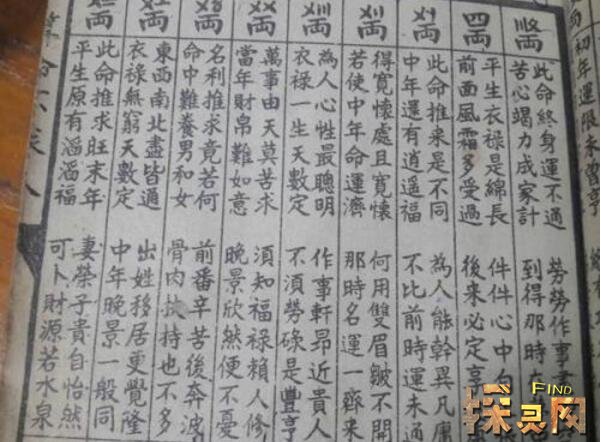 両
初年運限未曾亨
両
此命終身運不通
苦心竭力成家計
勞勞作事
到得那時
四両
平生衣祿是綿長
前面風霜多受過
件件心中自
後来必定享
両
此命推来是不同
中年還有逍遥福
為人能幹異凡庸
不比前時運未通
両
得寬懷處且寬懷
若使中年命運濟
何用雙眉皺不開
那時名運一齊来
両
為人心性最聰明
衣祿一生天數定
作事軒昂近貴人
不須勞碌是豊亨
両
萬事由天莫苦求
當年財帛難如意
須知福禄賴人修
晚景欣然便不憂
両
名利推求竟若何
命中難養男和女
前番辛苦後奔波
骨肉扶持也不多
両
東西南北盡皆通
衣禄無窮天數定
出姓移居更覺隆
中年晚景一般同
両
此命推求旺末年
平生原有滔滔福
妻榮子貴自怡然
可卜財源若水泉
算命不求人
FIND
探灵网